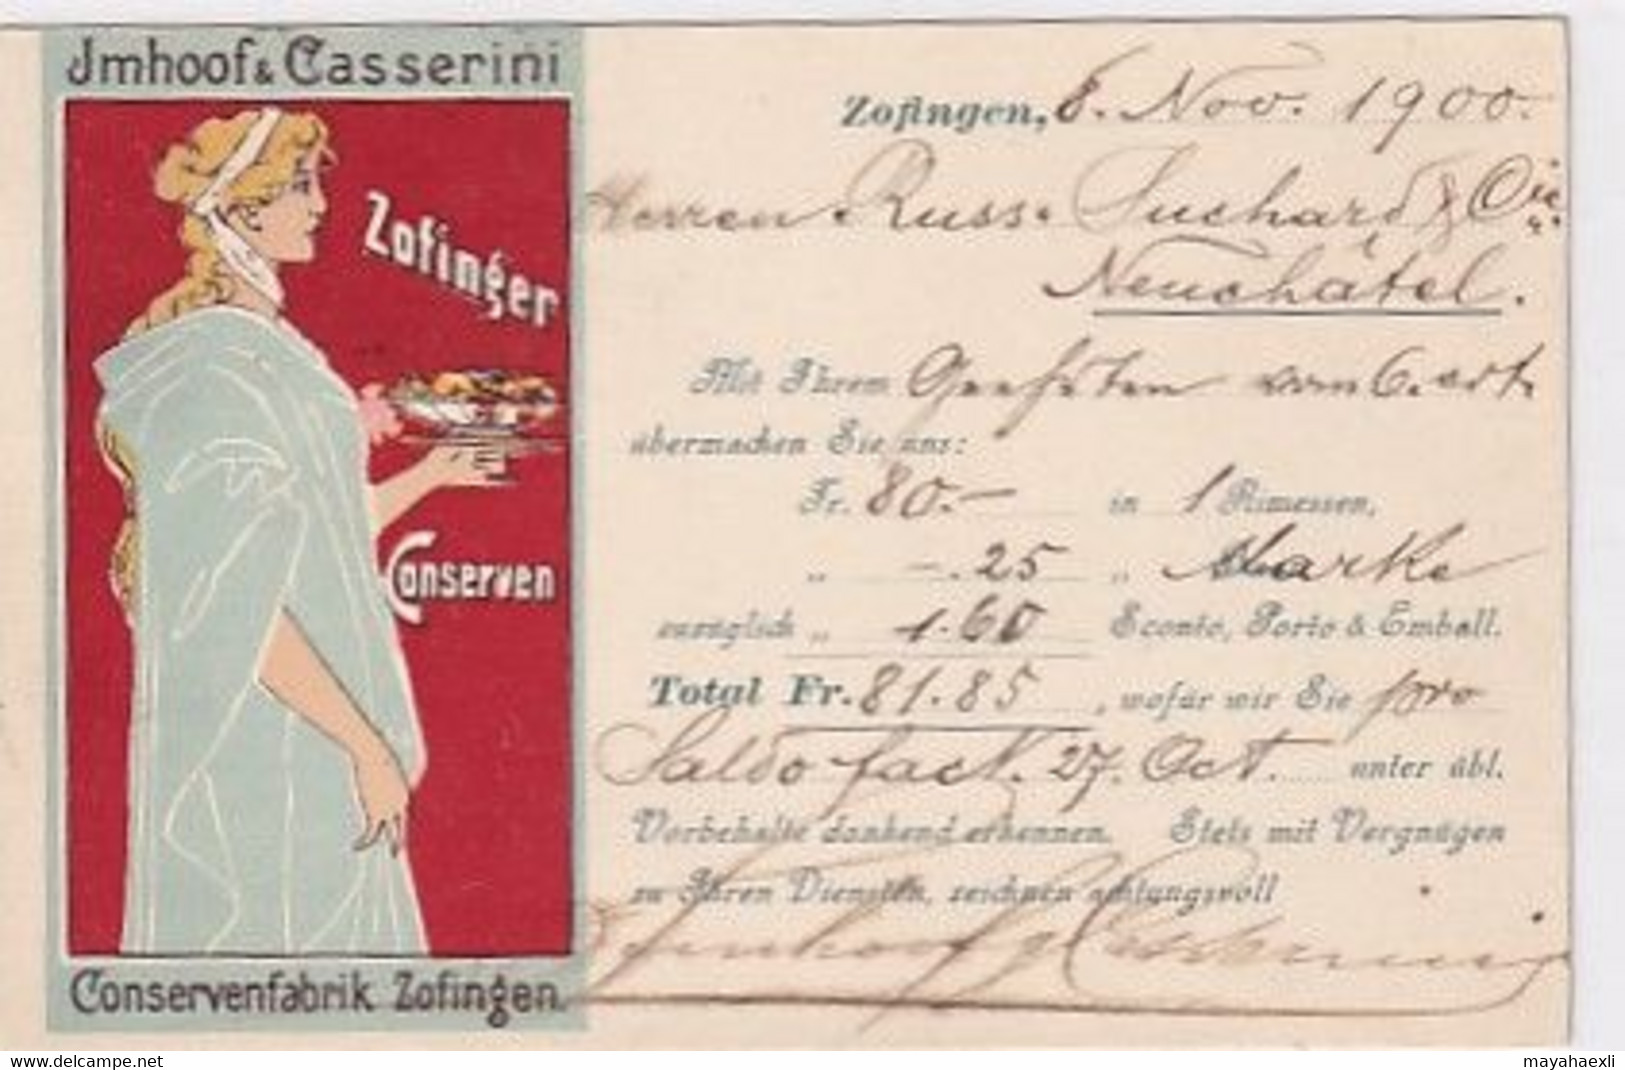 Jmhoof & Casserini
Zofinger
Conserven
Conservenfabrik Zofingen.
Zofingen, 8. Nov. 1900.
Herren Russ. Suchard & Cie.
Neuchâtel.
Mit Ihrem Geehrten vom 6. crt.
übermachen Sie uns:
Fr. 80.– in 1 Rimessen,
„ –.25 „ Marke
zuzüglich „ 1.60 Sconto, Porto & Emball.
Total Fr. 81.85, wofür wir Sie pro
Saldo fact. 27. Oct. unter übl.
Vorbehalte dankend erkennen. Stets mit Vergnügen
zu Ihren Diensten, zeichnen achtungsvoll
Imhoof & Casserini
delcampe.net
mayahaexli